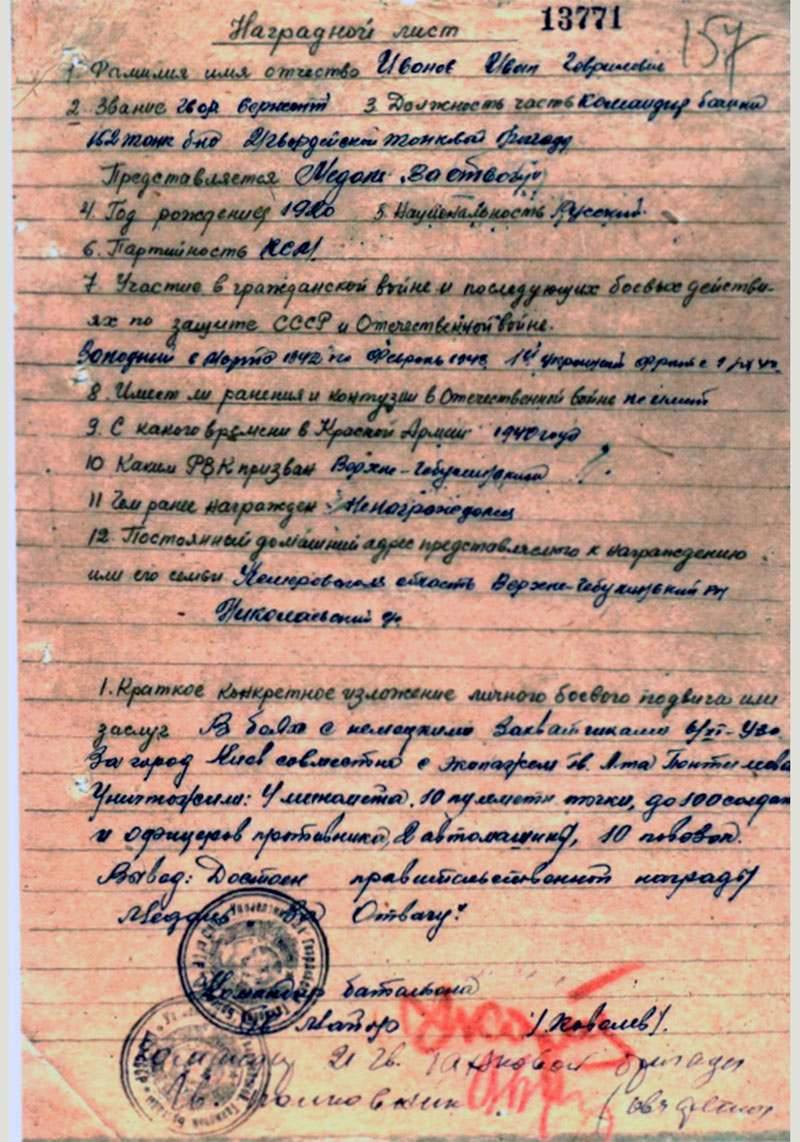 Наградной лист 13771
157
1. Фамилия имя отчество Иванов Иван Гаврилович
2. Звание гвар. сержант 3. Должность часть командир башни
152 танк бно 21 гвардейской танковой бригады
Представляется Медаль "За отвагу"
4. Год рождения 1920 5. Национальность Русский.
6. Партийность ВЛКСМ
7. Участие в гражданской войне и последующих боевых действи-
ях по защите СССР и Отечественной войне.
Западный с марта 1942 по февраль 1943 1й украинский фронт с
8. Имеет ли ранения и контузии в Отечественной войне не имеет
9. С какого времени в Красной Армии 1940 года
10 Каким РВК призван Верхне-Чебулинским
11 Чем ранее награжден Ненагражден
12. Постоянный домашний адрес представляемого к награждению
или его семьи Кемеровская область Верхне-Чебулинский рн
Николаевский
1. Краткое конкретное изложение личного боевого подвига или
заслуг В боях с немецкими захватчиками 6/XI-43г.
За город Киев совместно с экипажем гв. л-та
Уничтожили: 4 миномета, 10 пулеметн точки, до 100 солдат
и офицеров противника, 2 автомашины, 10 повозок.
Вывод: Достоен правительственной награды
Медаль "За Отвагу".
Командир батальона
гв Майор /Ковалев/.
21 гв. танковой бригады
Гв. полковник